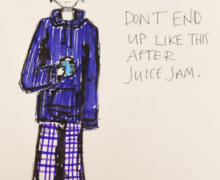 DON'T END
UP LIKE THIS
AFTER
JUICE JAM.